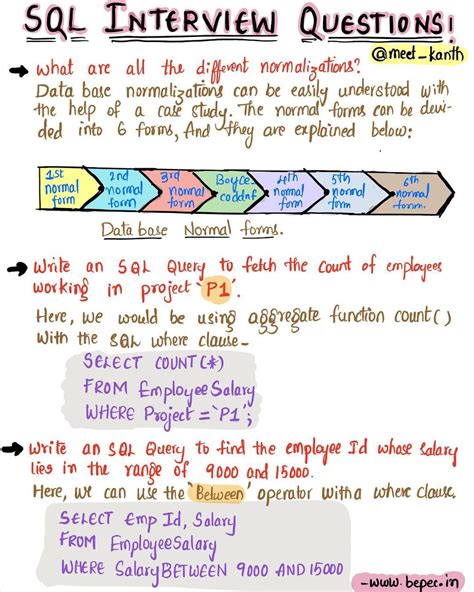 SQL INTERVIEW QUESTIONS!
@meet_kanth
→ What are all the different normalizations?
Data base normalizations can be easily understood with
the help of a case study. The normal forms can be devi-
ded into 6 forms, And they are explained below:
1st normal form
2nd normal form
3rd normal form
Boyce coddnf
4th normal form
5th normal form
6th normal form.
Data base Normal forms.
→ Write an SQL Query to fetch the count of employees
working in project `P1'.
Here, we would be using aggregate function count()
With the SQL where clause-
SELECT COUNT(*)
FROM EmployeeSalary
WHERE Project = `P1';
→ Write an SQL Query to find the employee Id whose salary
lies in the range of 9000 and 15000.
Here, we can use the `Between' operator with a where clause.
SELECT Emp Id, Salary
FROM EmployeeSalary
WHERE Salary BETWEEN 9000 AND 15000
-www.bepec.in